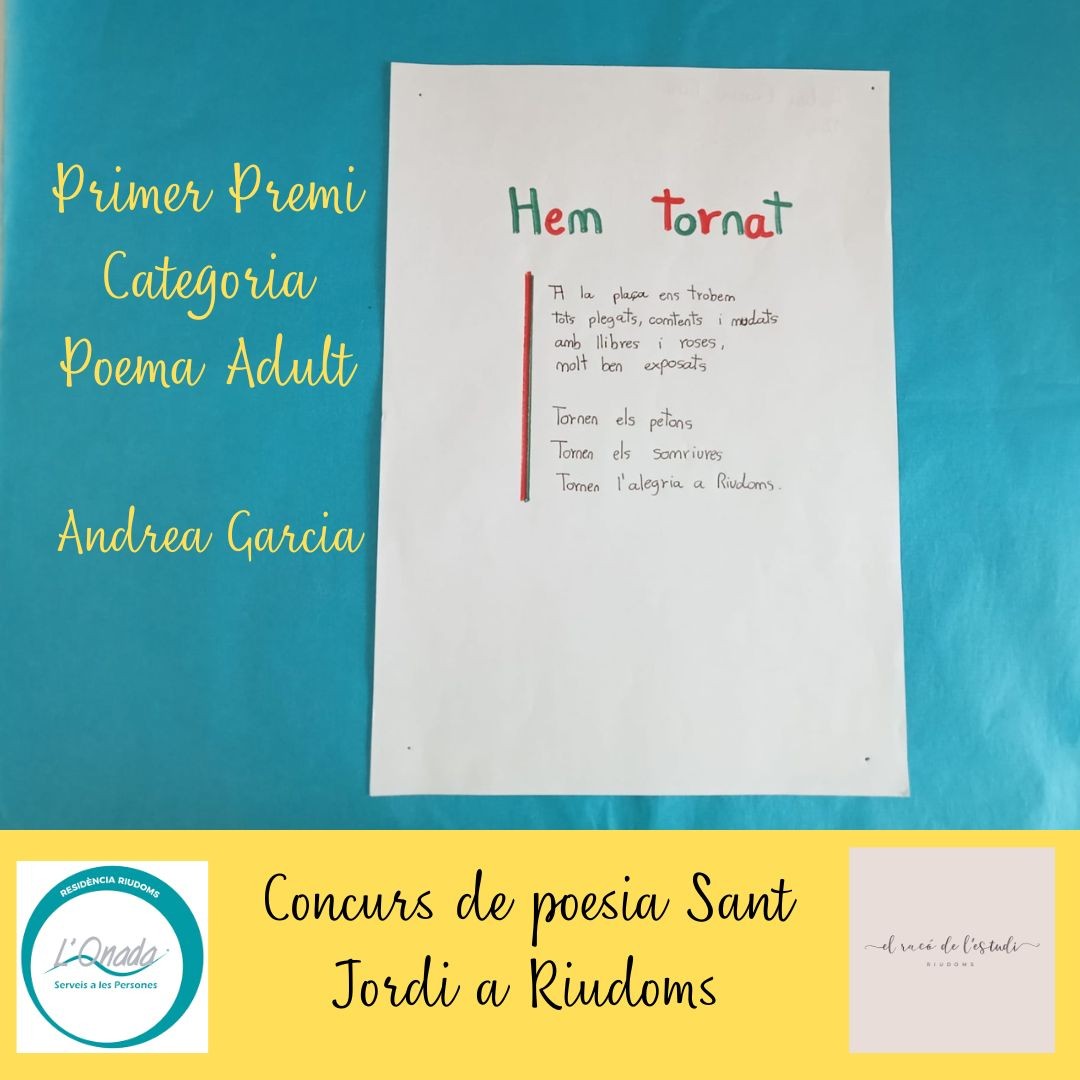 Primer Premi
Categoria
Poema Adult
Andrea Garcia
Hem tornat
A la plaça ens trobem
tots plegats, contents i mudats
amb llibres i roses,
molt ben exposats
Tornen els petons
Tornen els somriures
Tornen l'alegria a Riudoms.
RESIDÈNCIA RIUDOMS
L'Onada
Serveis a les Persones
Concurs de poesia Sant
Jordi a Riudoms
el racó de l'estudi
RIUDOMS